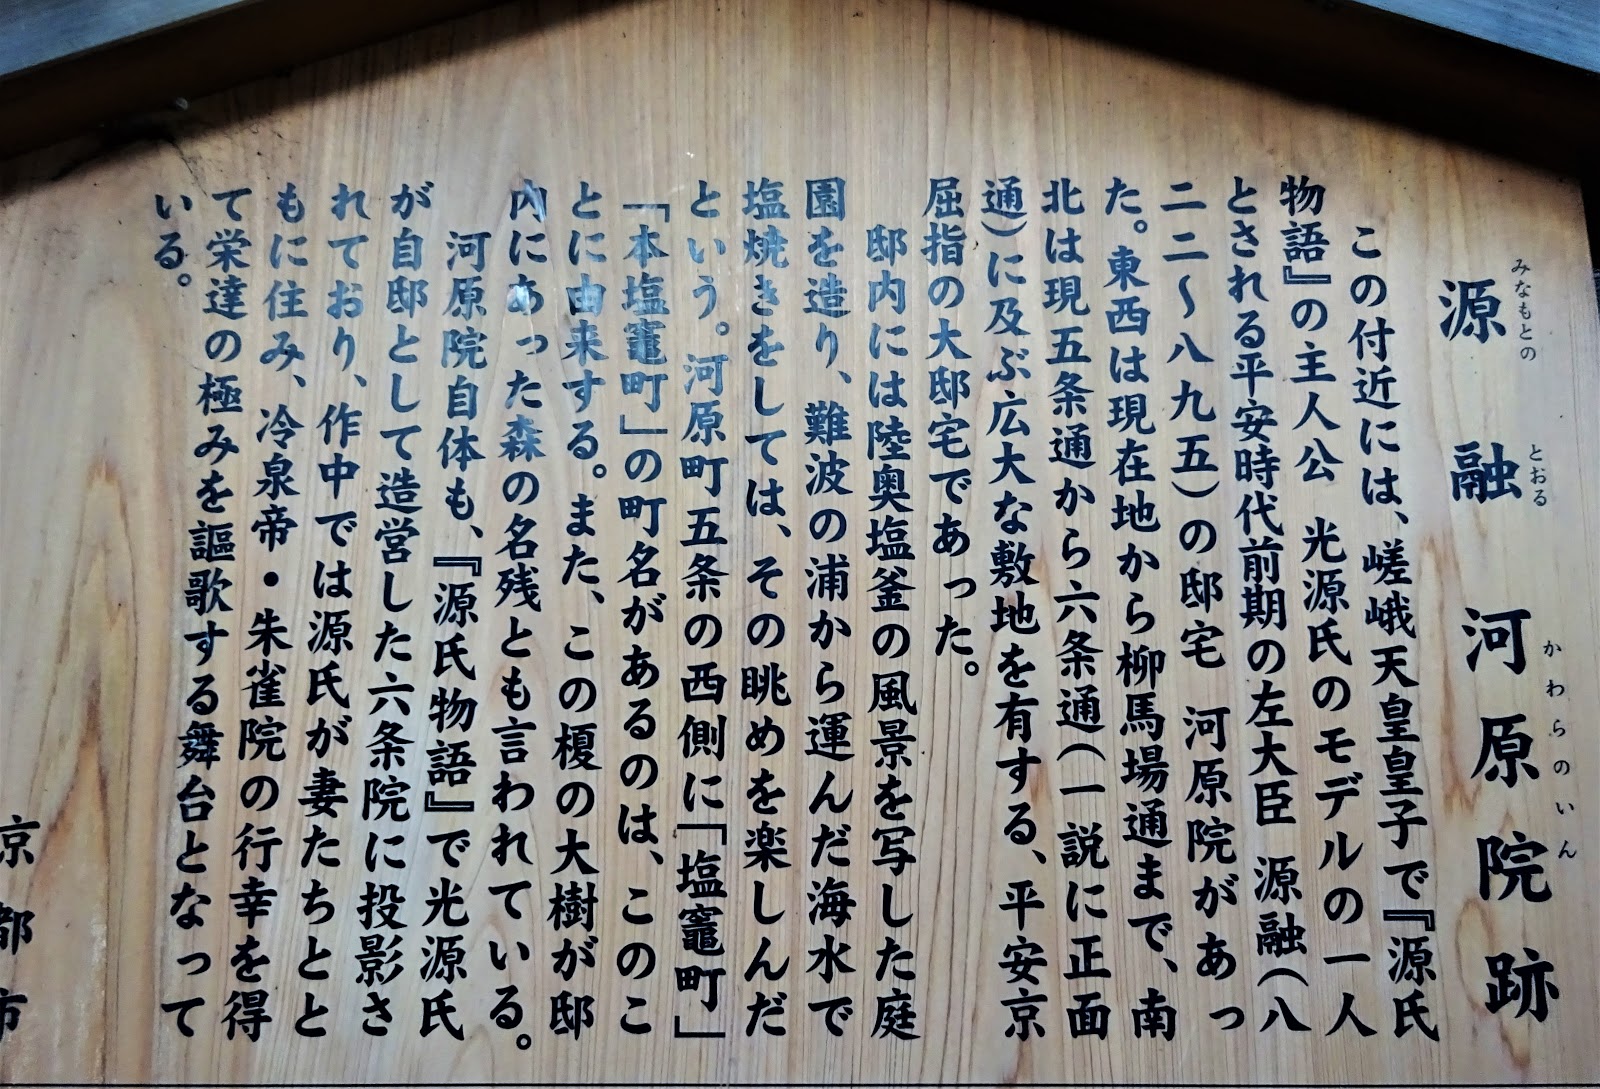 源融河原院跡
みなもとの とおる かわらのいん
この付近には、嵯峨天皇皇子で『源氏
物語』の主人公 光源氏のモデルの一人
とされる平安時代前期の左大臣 源融(八
二二~八九五)の邸宅 河原院があっ
た。東西は現在地から柳馬場通まで、南
北は現五条通から六条通(一説に正面
通)に及ぶ広大な敷地を有する、平安京
屈指の大邸宅であった。
邸内には陸奥塩釜の風景を写した庭
園を造り、難波の浦から運んだ海水で
塩焼きをしては、その眺めを楽しんだ
という。河原町五条の西側に「塩竈町」
「本塩竈町」の町名があるのは、このこ
とに由来する。また、この榎の大樹が邸
内にあった森の名残とも言われている。
河原院自体も、『源氏物語』で光源氏
が自邸として造営した六条院に投影さ
れており、作中では源氏が妻たちとと
もに住み、冷泉帝・朱雀院の行幸を得
て栄達の極みを謳歌する舞台となって
いる。
京都市